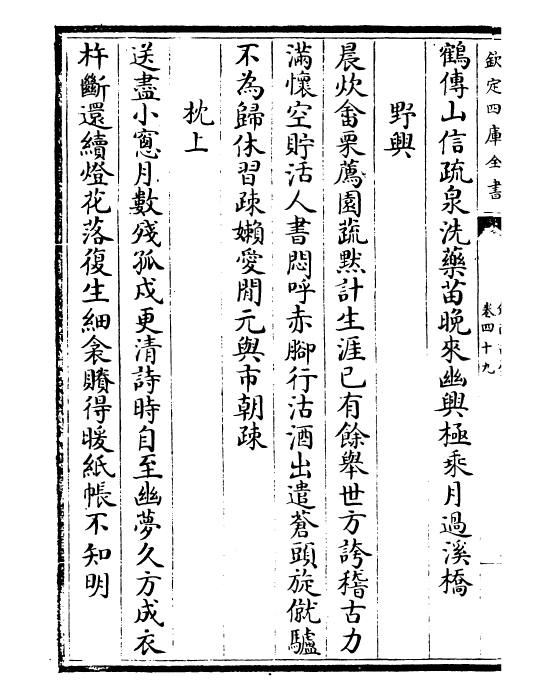 欽定四庫全書
卷四十九
鶴傳山信疏泉洗藥苗晚來幽興極乘月過溪橋
野興
晨炊畬粟薦園蔬默計生涯已有餘舉世方誇稽古力
滿懷空貯活人書悶呼赤腳行沽酒出遣蒼頭旋僦驢
不為歸休習疎嬾愛閒元與市朝疎
枕上
送盡小窻月數殘孤戍更清詩時自至幽夢久方成衣
杵斷還續燈花落復生細衾贋得暖紙帳不知明